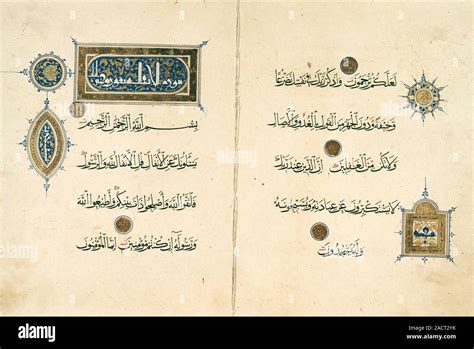 لعلكم ترحمون واذكر ربك في نفسك تضرعا
وخيفة ودون الجهر من القول بالغدو والآصال
ولا تكن من الغفلين إن الذين عند ربك
لا يستكبرون عن عبادته ويسبحونه
وله يسجدون
بسم الله الرحمن الرحيم
يسئلونك عن الأنفال قل الأنفال لله والرسول
فاتقوا الله وأصلحوا ذات بينكم وأطيعوا الله
ورسوله إن كنتم مؤمنين إنما المؤمنون
alamy
Image ID: 2ACT2YK
www.alamy.com